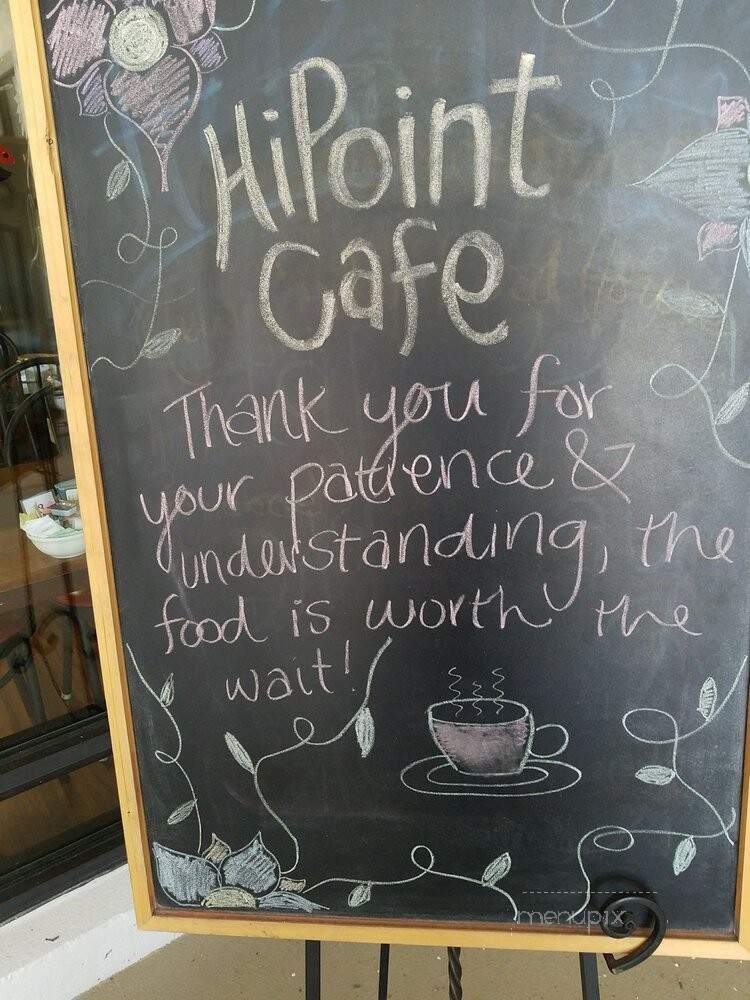 HiPoint
Cafe
Thank you for
your patience &
understanding, the
food is worth the
wait!
menupix